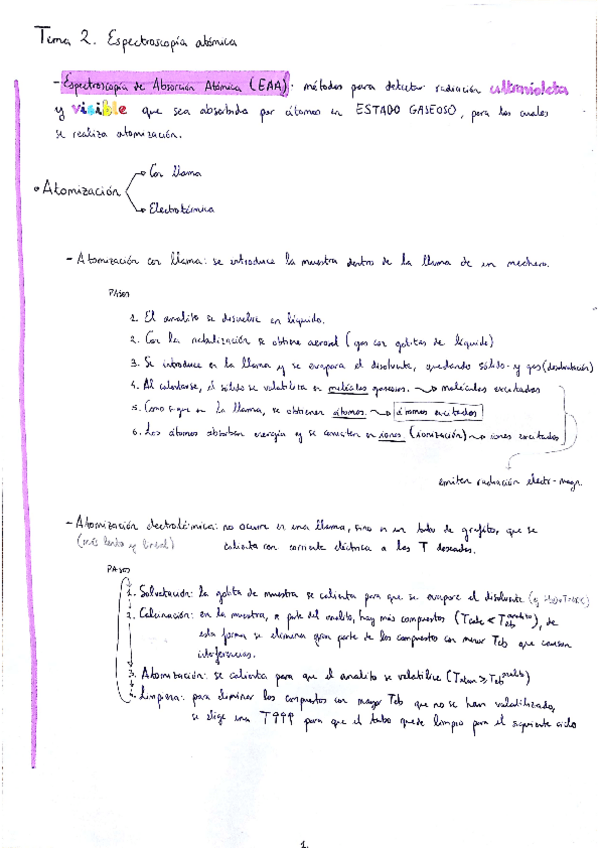 Tema 2. Espectroscopía atómica
- Espectroscopía de Absorción Atómica (EAA): métodos para detectar radiación ultravioleta
y visible que sea absorbida por átomos en ESTADO GASEOSO, para los cuales
se realiza atomización.
Con llama
• Atomización
Electrotérmica
- Atomización con llama: se introduce la muestra dentro de la llama de un mechero.
PASOS
1. El analito se disuelve en líquido.
2. Con la nebulización se obtiene aerosol (gas con gotitas de líquido)
3. Se introduce en la llama y se evapora el disolvente, quedando sólido y gas (desolvatación)
4. Al calentarse, el sólido se volatiliza en moléculas gaseosas. → moléculas excitadas
5. Como sigue en la llama, se obtienen átomos. → átomos excitados
6. Los átomos absorben energía y se convierten en iones (ionización) → iones excitados
emiten radiación electro-magn.
- Atomización electrotérmica: no ocurre en una llama, sino en un tubo de grafito, que se
(más lento y lineal) calienta con corriente eléctrica a las T deseadas.
PASOS
1. Solvatación: la gotita de muestra se calienta para que se evapore el disolvente
2. Calcinación: en la muestra, a parte del analito, hay más compuestos (Tcalc < Teb analito), de
esta forma se elimina gran parte de los compuestos con menor Teb que causan
interferencias.
3. Atomización: se calienta para que el analito se volatilice (Tatom ≥ Teb analito)
4. Limpieza: para eliminar los compuestos con mayor Teb que no se han volatilizado,
se elige una T↑↑↑ para que el tubo quede limpio para el siguiente ciclo
1.